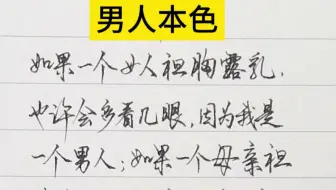 男人本色
如果一个女人袒胸露乳，
也许会多看几眼，因为我是
一个男人；如果一个母亲袒